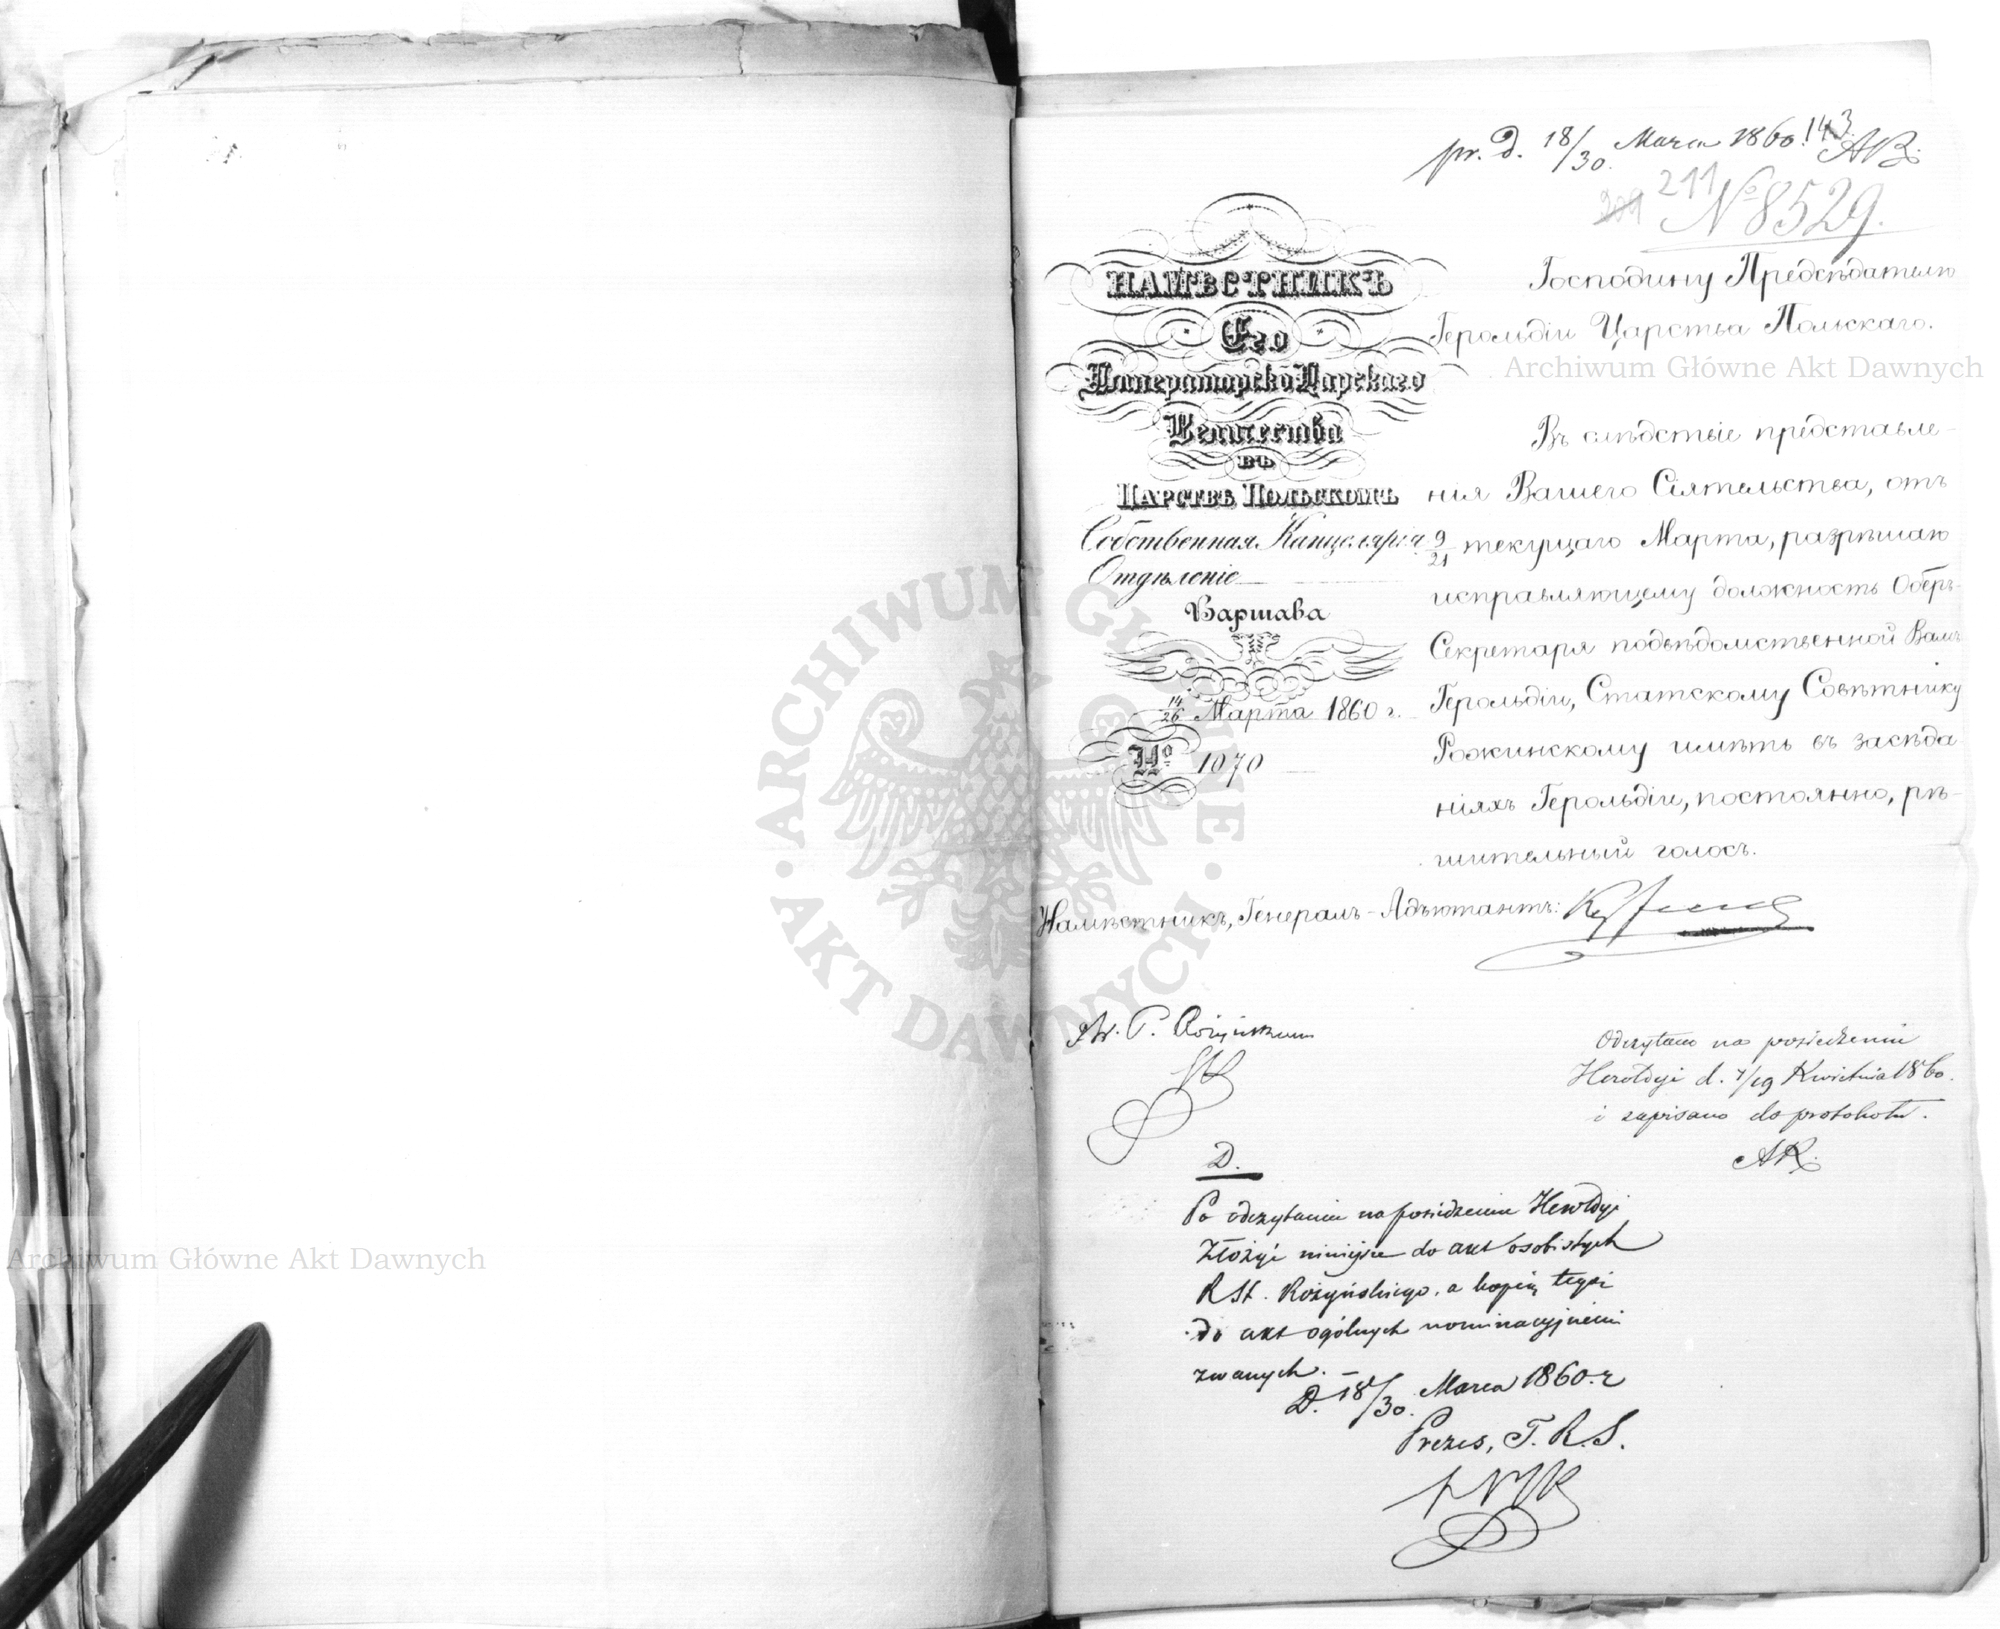 pr. D. 18/30. Marca 1860. 143.
AB.
209 211
№ 8529.
НАМѢСТНИКЪ
Его
Императорско Царскаго
Величества
въ
Царствѣ Польскомъ
Собственная Канцелярія
Отдѣленіе
Варшава
14/26 Марта 1860 г.
№ 1070
Господину Предсѣдателю
Герольдіи Царства Польскаго.
Въ слѣдствіе представле-
нія Вашего Сіятельства, отъ
9/21 текущаго Марта, разрѣшаю
исправляющему должность Оберъ-
Секретаря подвѣдомственной Вамъ
Герольдіи, Статскому Совѣтнику
Рожинскому имѣть въ засѣда
ніяхъ Герольдіи, постоянно, рѣ-
шительный голосъ.
Намѣстникъ, Генералъ-Адъютантъ:
P.
Odczytano na posiedzeniu
Heroldyi d. 7/19 Kwietnia 1860.
i zapisano do protokołu.
AR.
D.
Po odczytaniu na posiedzeniu Heroldyi
złożyć niniejsze do akt osobistych
RSt. Rożyńskiego, a kopią tegoż
do akt ogólnych nominacyjnemi
zwanych.
D. 18/30. Marca 1860. r
Prezes, T. R. S.
Archiwum Główne Akt Dawnych
Archiwum Główne Akt Dawnych
ARCHIWUM GŁÓWNE · AKT DAWNYCH ·